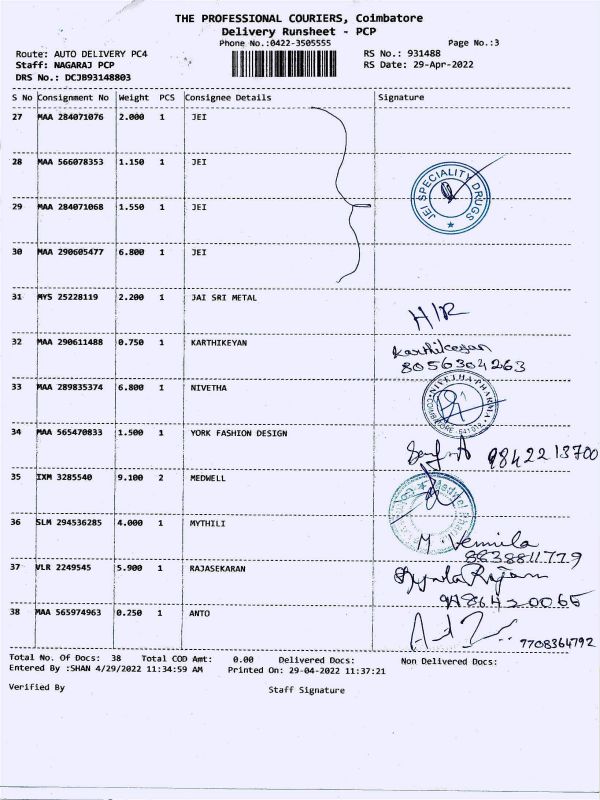 THE PROFESSIONAL COURIERS, Coimbatore
Delivery Runsheet - PCP
Phone No.:0422-3505555 Page No.:3
Route: AUTO DELIVERY PC4 RS No.: 931488
Staff: NAGARAJ PCP RS Date: 29-Apr-2022
DRS No.: DCJB93148803
S No Consignment No Weight PCS Consignee Details Signature
27 MAA 284071076 2.000 1 JEI
28 MAA 566078353 1.150 1 JEI
JEI SPECIALITY DRUGS
29 MAA 284071068 1.550 1 JEI
30 MAA 290605477 6.800 1 JEI
31 MYS 25228119 2.200 1 JAI SRI METAL
H/R
32 MAA 290611488 0.750 1 KARTHIKEYAN
Karthikeyan
8056304263
33 MAA 289835374 6.800 1 NIVETHA
NIVETHA PHARMA
COIMBATORE
34 MAA 565470833 1.500 1 YORK FASHION DESIGN
9842213700
35 IXM 3285540 9.100 2 MEDWELL
36 SLM 294536285 4.000 1 MYTHILI
M. Vennila
8838811779
37 VLR 2249545 5.900 1 RAJASEKARAN
38 MAA 565974963 0.250 1 ANTO
7708364792
Total No. Of Docs: 38 Total COD Amt: 0.00 Delivered Docs: Non Delivered Docs:
Entered By :SHAN 4/29/2022 11:34:59 AM Printed On: 29-04-2022 11:37:21
Verified By Staff Signature